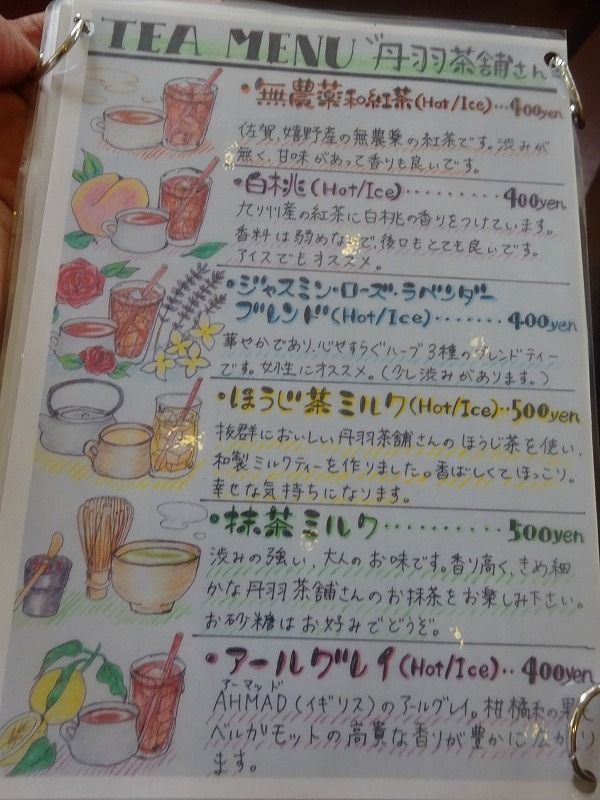 TEA MENU 丹羽茶舗さん
・無農薬和紅茶(Hot/Ice)‥400yen
佐賀、嬉野産の無農薬の紅茶です。渋みが
無く、甘味があって香りも良いです。
・白桃(Hot/Ice)‥‥‥‥400yen
九州産の紅茶に白桃の香りをつけています。
香料は弱めなので、後口もとても良いです。
アイスでもオススメ。
・ジャスミン・ローズ・ラベンダー
ブレンド(Hot/Ice)‥‥‥400yen
華やかであり、心やすらぐハーブ3種のブレンドティー
です。女性にオススメ。(少し渋みがあります。)
・ほうじ茶ミルク(Hot/Ice)‥500yen
抜群においしい丹羽茶舗さんのほうじ茶を使い、
和製ミルクティーを作りました。香ばしくてほっこり。
幸せな気持ちになります。
・抹茶ミルク‥‥‥‥‥500yen
渋みの強い、大人のお味です。香り高く、きめ細
かな丹羽茶舗さんのお抹茶をお楽しみ下さい。
お砂糖はお好みでどうぞ。
・アールグレイ(Hot/Ice)‥400yen
アーマッド
AHMAD(イギリス)のアールグレイ。柑橘系の果
ベルガモットの高貴な香りが豊かに広がり
ます。